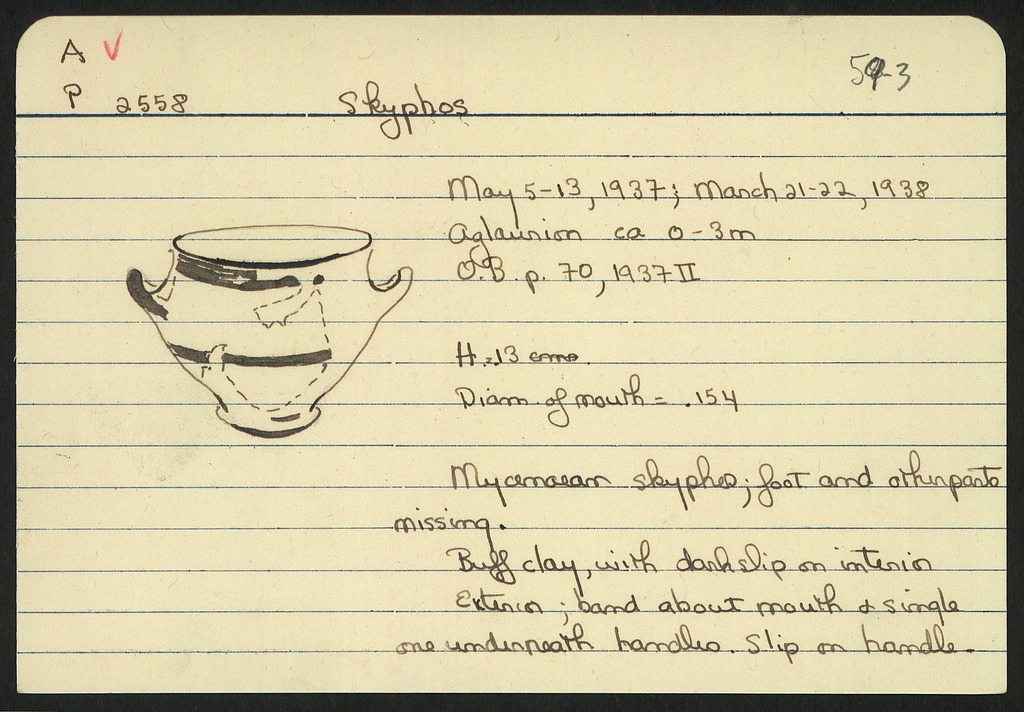 A V
59-3
P 2558 Skyphos
May 5-13, 1937; March 21-22, 1938
Aglaurion ca 0-3m
O.B. p. 70, 1937 II
H. .13 cms.
Diam. of mouth = .154
Mycenaean skyphos; foot and other parts
missing.
Buff clay, with dark slip on interior
Exterior; band about mouth & single
one underneath handles. Slip on handle.